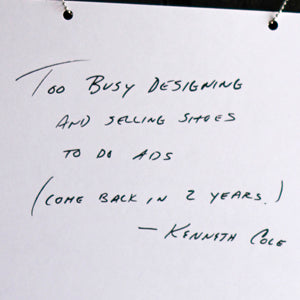 Too Busy Designing
and selling shoes
to do ads
(come back in 2 years.)
— Kenneth Cole